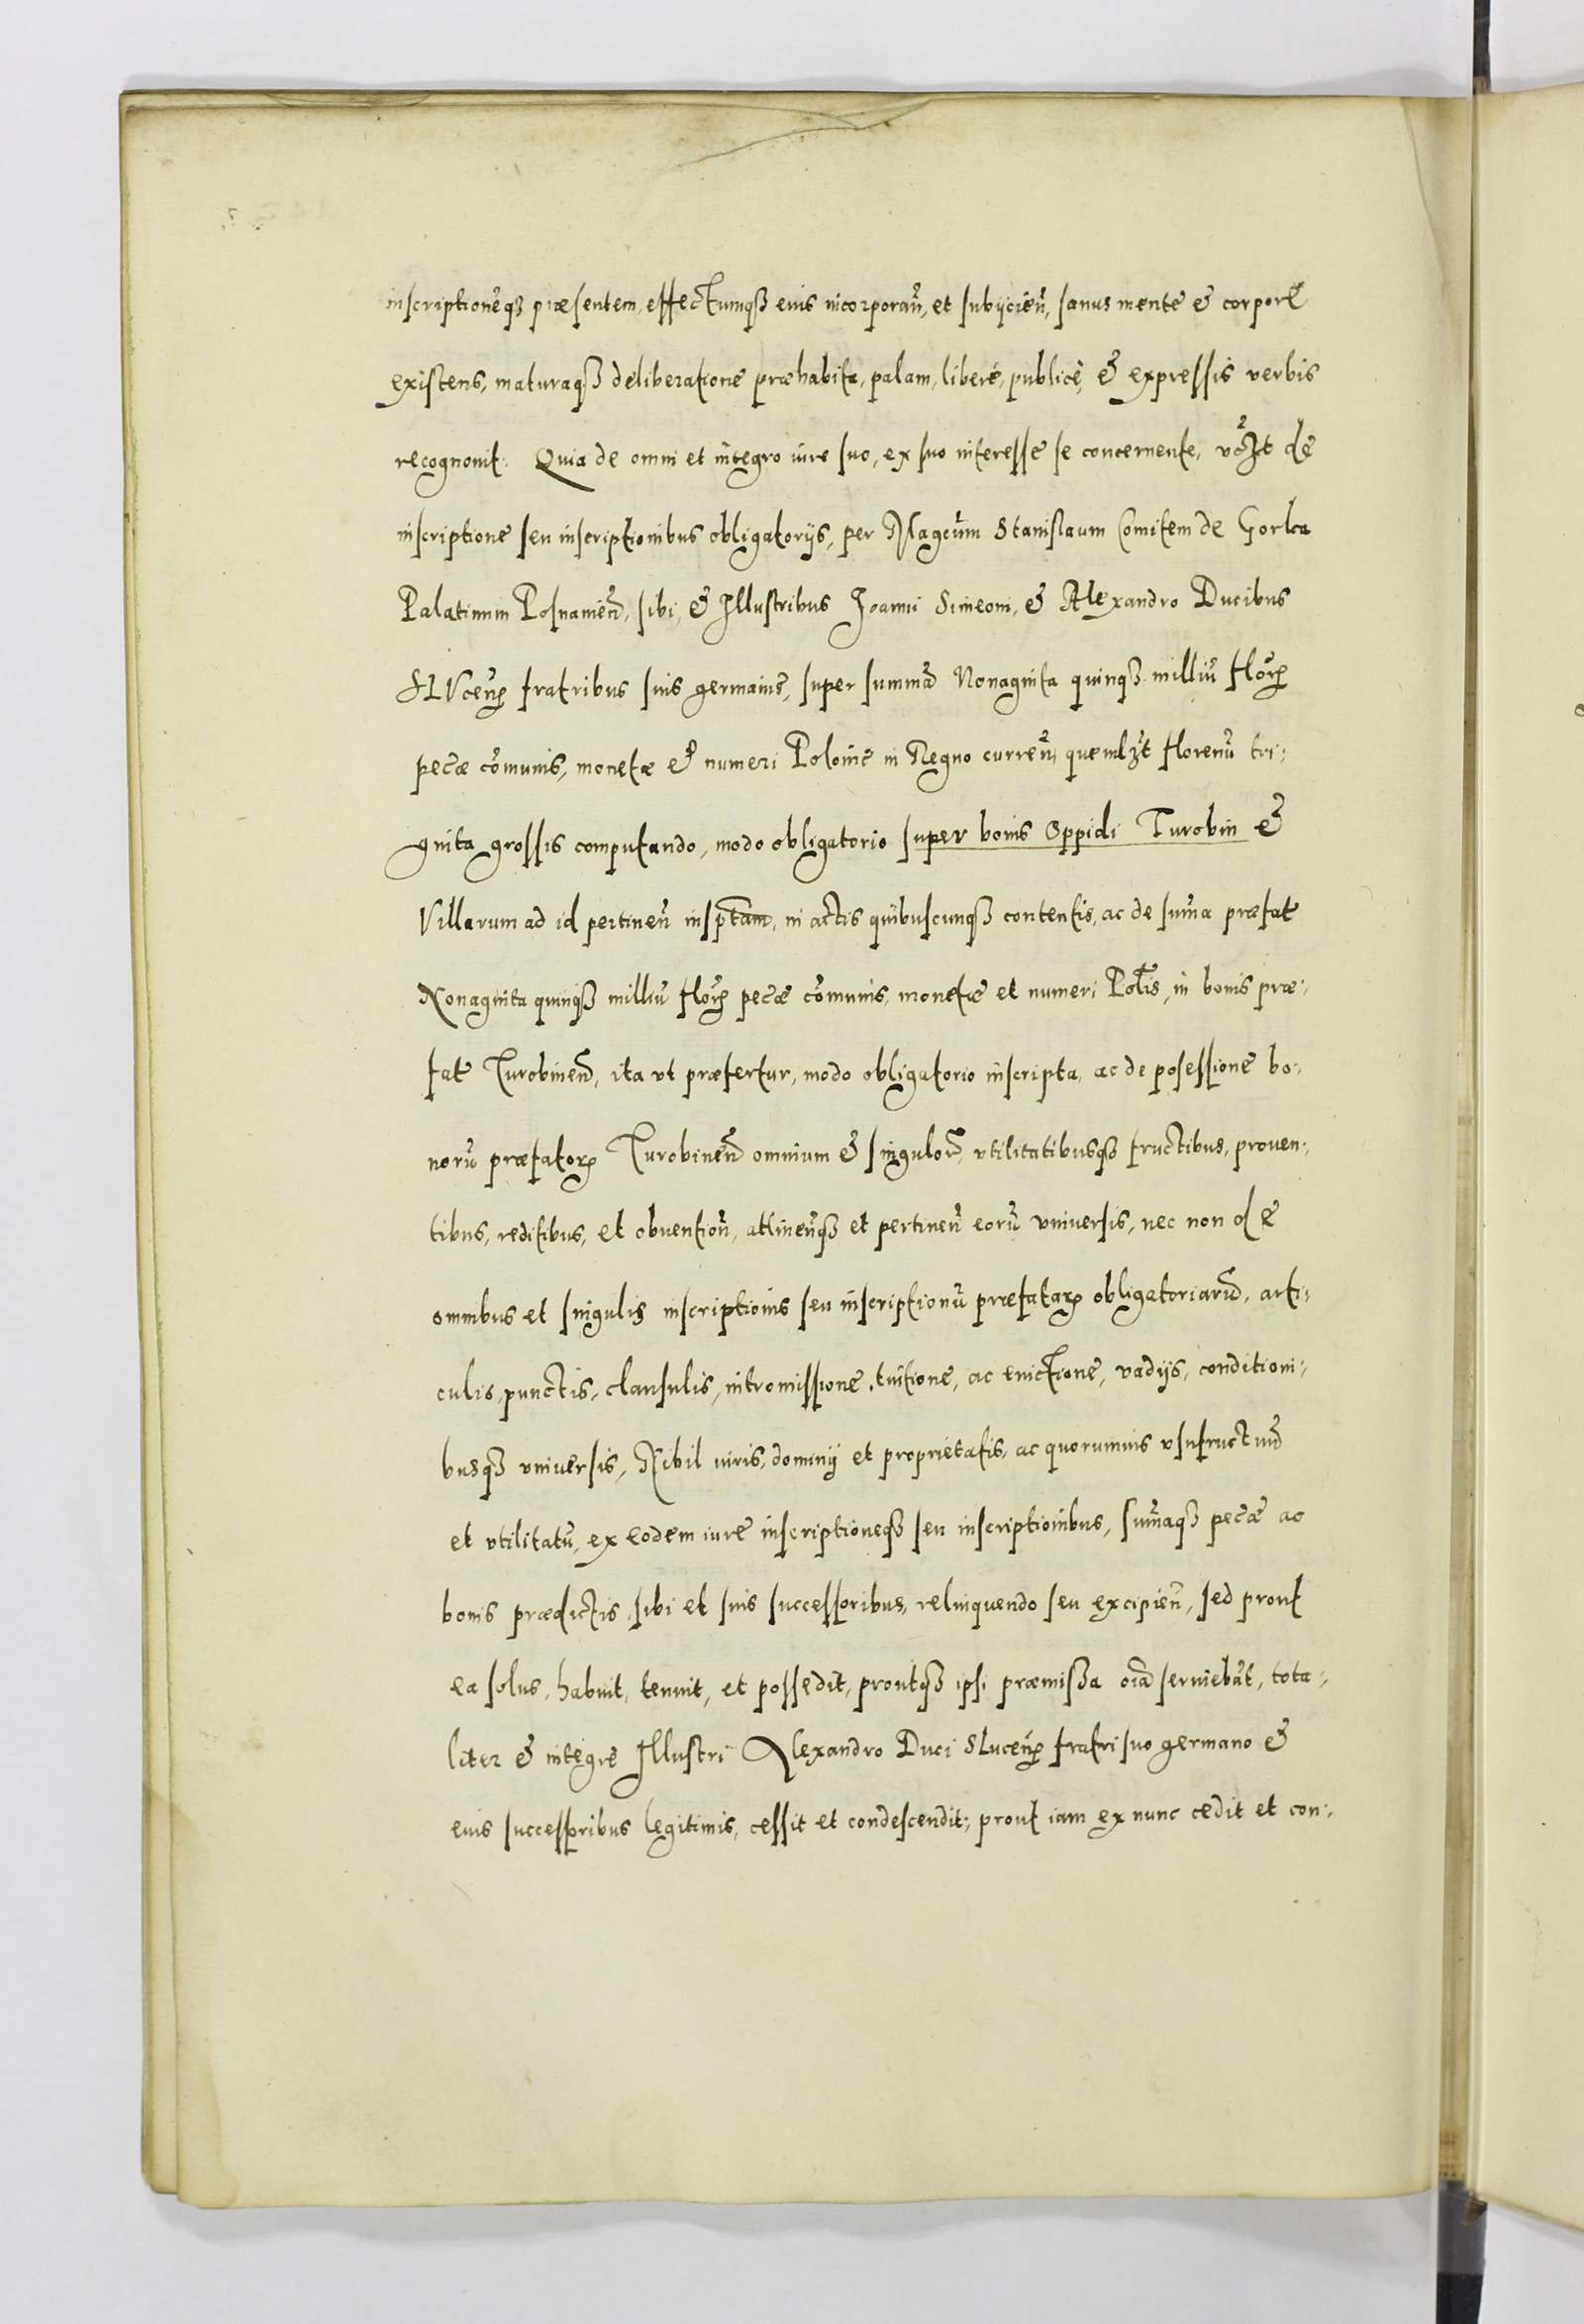 inscriptionẽqꝫ præsentem, effectumqꝫ eius incorporañ, et subijcieñ, sanus mente & corpore
existens, maturaqꝫ deliberatione præhabita, palam, liberè, publicè, & expressis verbis
recognouit: Quia de omni et integro iure suo, ex suo interesse se concernente, de
inscriptione seu inscriptionibus obligatorijs, per Magcũm Stanislaum Comitem de Gorka
Palatinum Posnanieñ, sibi, & Illustribus Joanni Simeoni, & Alexandro Ducibus
SLVceñ fratribus suis germanis, super summã Nonaginta quinqꝫ milliũ floꝝ
pecũæ cõmunis, monetæ & numeri Polonic̃ in Regno curreñ, quemlꝫt florenũ tri:
ginta grossis computando, modo obligatorio super bonis Oppidi Turobin &
Villarum ad id pertineñ insptam, in actis quibuscunqꝫ contentis, ac de sum̃a præfat
Nonaginta quinqꝫ milliũ floꝝ pecũæ cõmunis, monetæ et numeri Polĩs, in bonis præ:
fat Turobineñ, ita vt præfertur, modo obligatorio inscripta, ac de posessione bo:
norũ præfatoꝝ Turobineñ omnium & singuloꝝ, vtilitatibusqꝫ fructibus, prouen:
tibus, reditibus, et obuentioñ, attineñqꝫ et pertineñ eorũ vniuersis, nec non de
omnibus et singulis inscriptionis seu inscriptionũ præfataꝝ obligatoriarũ, arti:
culis, punctis, clausulis, intromissione, tuitione, ac euictione, vadijs, conditioni:
busqꝫ vniuersis, Nihil iuris, dominij et proprietatis, ac quorumuis vsufructuũ
et vtilitatũ, ex eodem iure inscriptioneqꝫ seu inscriptionibus, sum̃aqꝫ pecũæ ac
bonis prædictis sibi et suis successoribus, relinquendo seu excipieñ, sed prout
ea solus, habuit, tenuit, et possedit, proutqꝫ ipsi præmissa oĩa seruiebãt, tota:
liter & integre Illustri Alexandro Duci Sluceñ fratri suo germano &
eius successoribus legitimis, cessit et condescendit; prout iam ex nunc cedit et con: